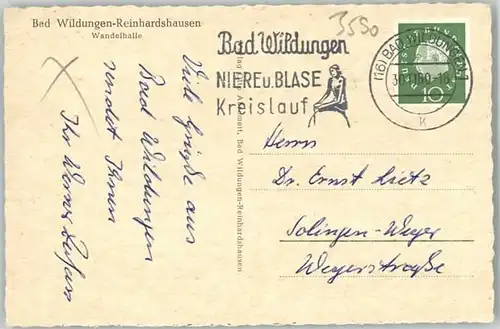 Bad Wildungen-Reinhardshausen
Wandelhalle
3550
Bad Wildungen
NIERE u. BLASE
Kreislauf
(16) BAD WILDUNGEN 1
10
K
Viele Grüße aus
Bad Wildungen
sendet Ihnen
Ihr Werner
Bad Wildungen-Reinhardshausen
Herrn
Dr. Ernst Lietz
Solingen-Weyer
Weyerstraße